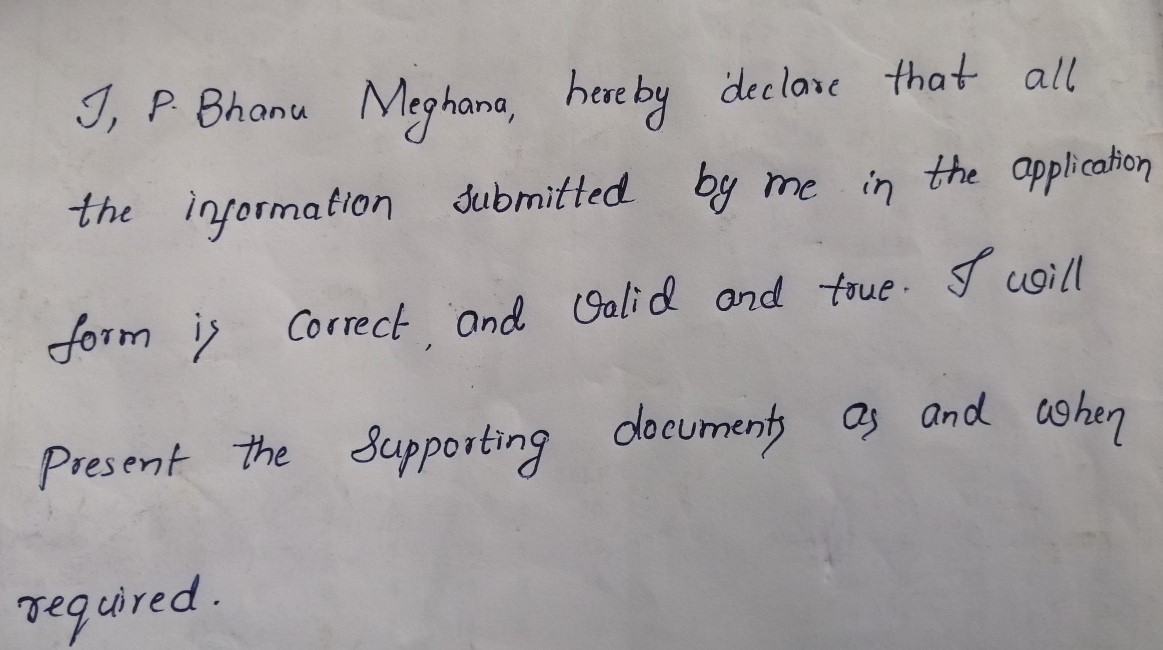 I, P. Bhanu Meghana, hereby declare that all
the information submitted by me in the application
form is Correct, and Valid and true. I will
Present the Supporting documents as and when
required.